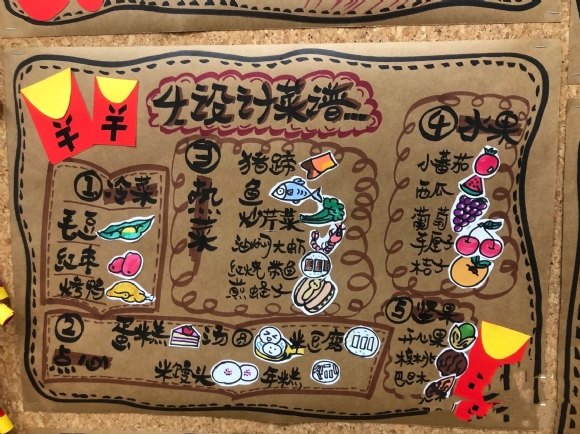 羊
羊
4.设计菜谱...
①冷菜
毛豆
红枣
烤鸭
②点心
蛋糕
汤圆
米馒头
年糕
③热菜
猪蹄
鱼
炒芹菜
油焖大虾
红烧带鱼
煎蛏子
④水果
小番茄
西瓜
葡萄
车厘子
桔子
⑤坚果
开心果
核桃
巴旦木